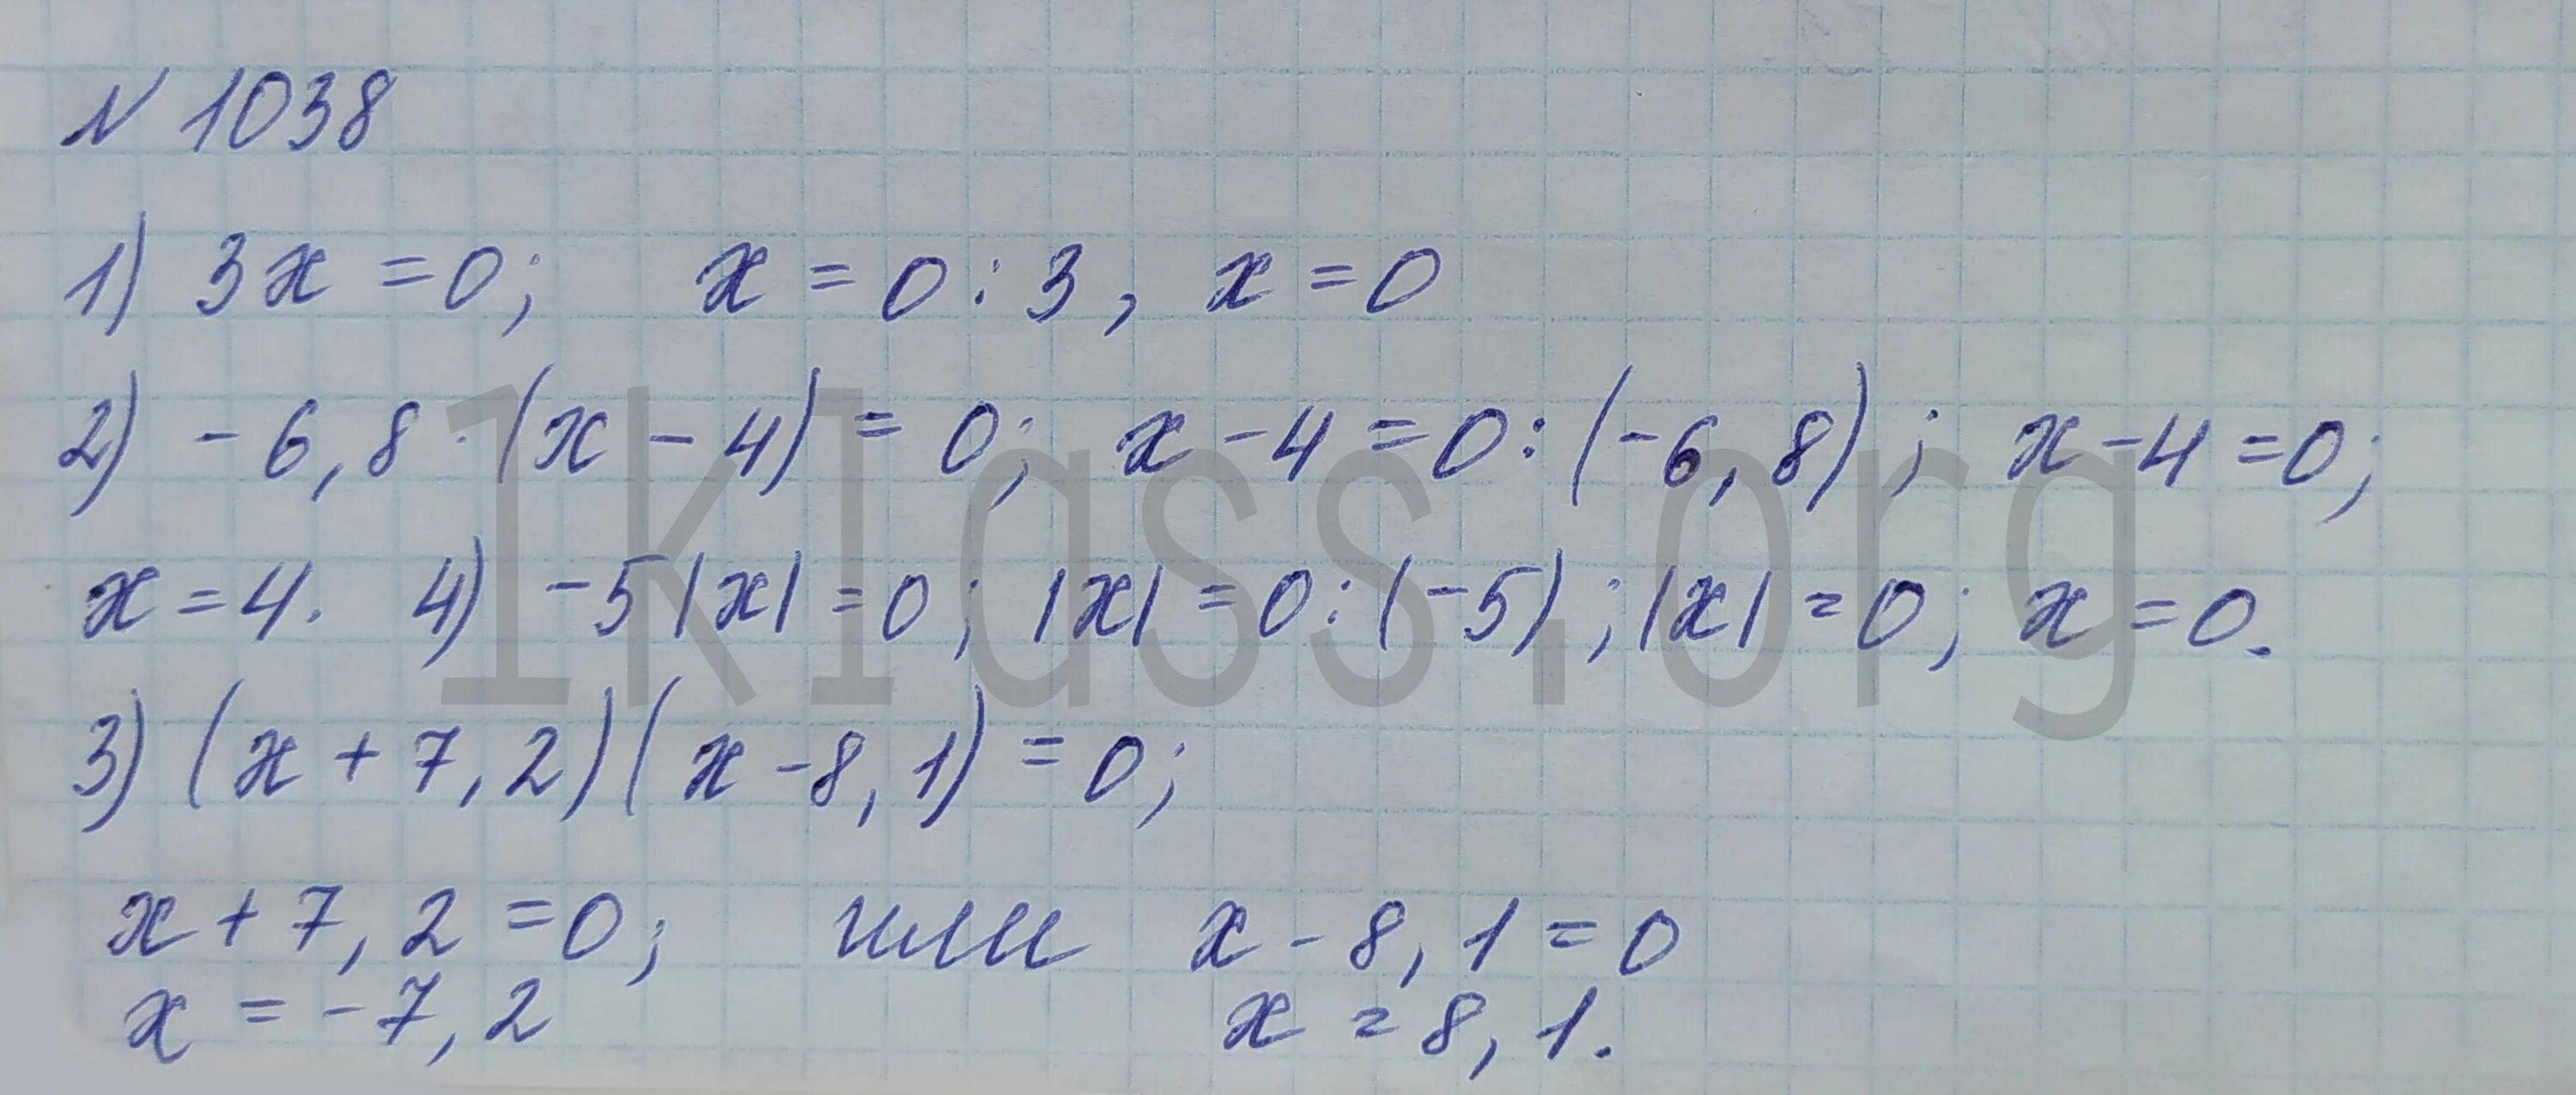 N 1038
1) 3x = 0; x = 0 : 3, x = 0
2) -6,8 · (x - 4) = 0; x - 4 = 0 : (-6,8); x - 4 = 0;
x = 4. 4) -5|x| = 0; |x| = 0 : (-5); |x| = 0; x = 0.
3) (x + 7,2)(x - 8,1) = 0;
x + 7,2 = 0; или x - 8,1 = 0
x = -7,2 x = 8,1.
1klass.org